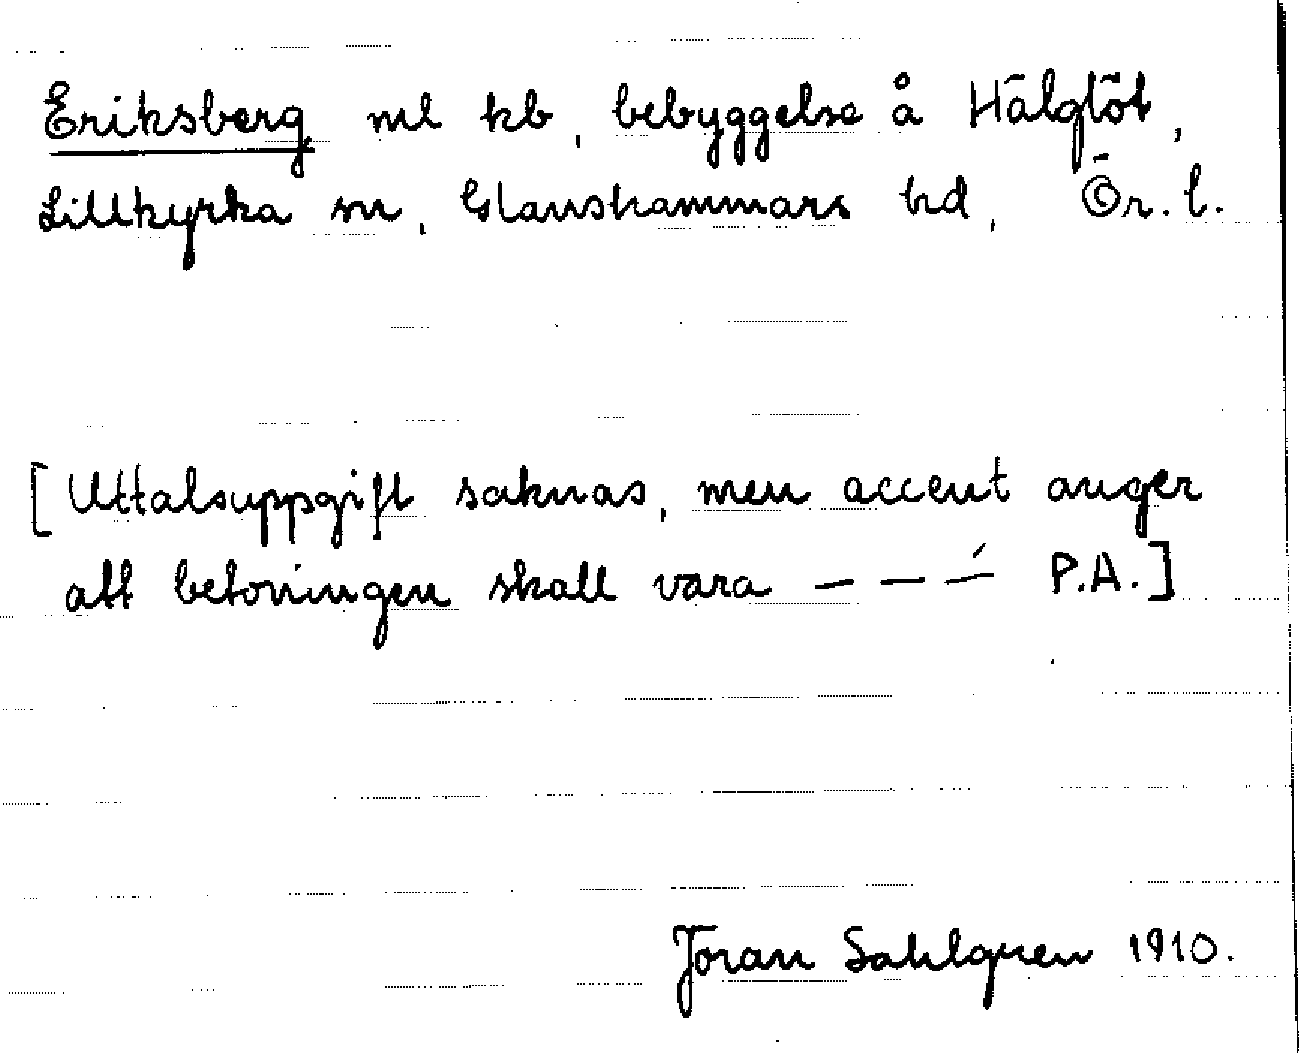 Eriksberg ml kb, bebyggelse å Hälgtöt,
Lillkyrka sn, Glanshammars hd, Ör. l.
[Uttalsuppgift saknas, men accent anger
att betoningen skall vara — — —́ P.A.]
Jöran Sahlgren 1910.